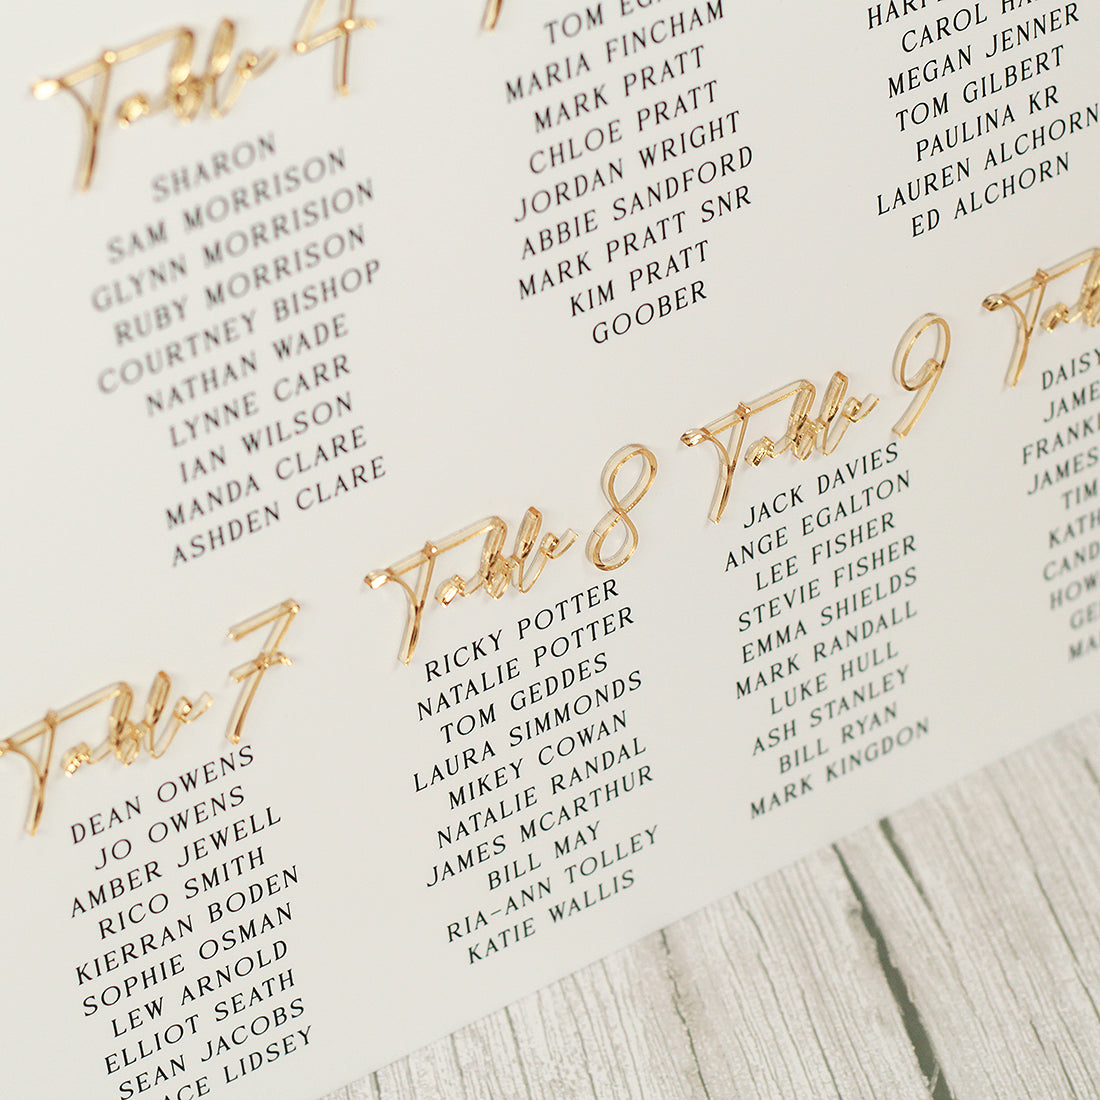 Table 4
SHARON
SAM MORRISON
GLYNN MORRISION
RUBY MORRISON
COURTNEY BISHOP
NATHAN WADE
LYNNE CARR
IAN WILSON
MANDA CLARE
ASHDEN CLARE
TOM
MARIA FINCHAM
MARK PRATT
CHLOE PRATT
JORDAN WRIGHT
ABBIE SANDFORD
MARK PRATT SNR
KIM PRATT
GOOBER
CAROL
MEGAN JENNER
TOM GILBERT
PAULINA KR
LAUREN ALCHORN
ED ALCHORN
Table 7
DEAN OWENS
JO OWENS
AMBER JEWELL
RICO SMITH
KIERRAN BODEN
SOPHIE OSMAN
LEW ARNOLD
ELLIOT SEATH
SEAN JACOBS
LIDSEY
Table 8
RICKY POTTER
NATALIE POTTER
TOM GEDDES
LAURA SIMMONDS
MIKEY COWAN
NATALIE RANDAL
JAMES MCARTHUR
BILL MAY
RIA-ANN TOLLEY
KATIE WALLIS
Table 9
JACK DAVIES
ANGE EGALTON
LEE FISHER
STEVIE FISHER
EMMA SHIELDS
MARK RANDALL
LUKE HULL
ASH STANLEY
BILL RYAN
MARK KINGDON
DAISY
JAMES
TIM